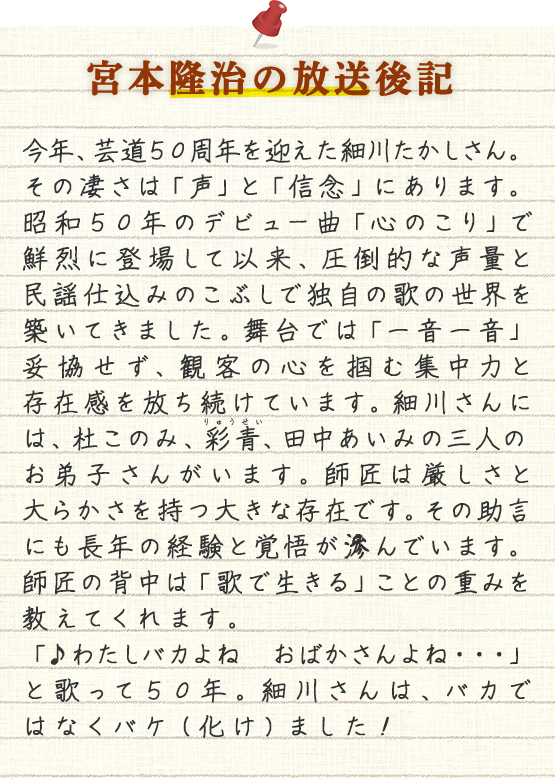 宮本隆治の放送後記
今年、芸道50周年を迎えた細川たかしさん。
その凄さは「声」と「信念」にあります。
昭和50年のデビュー曲「心のこり」で
鮮烈に登場して以来、圧倒的な声量と
民謡仕込みのこぶしで独自の歌の世界を
築いてきました。舞台では「一音一音」
妥協せず、観客の心を掴む集中力と
存在感を放ち続けています。細川さんに
は、杜このみ、彩青、田中あいみの三人の
りゅうせい
お弟子さんがいます。師匠は厳しさと
大らかさを持つ大きな存在です。その助言
にも長年の経験と覚悟が滲んでいます。
師匠の背中は「歌で生きる」ことの重みを
教えてくれます。
「♪わたしバカよね　おばかさんよね・・・」
と歌って50年。細川さんは、バカで
はなくバケ(化け)ました!